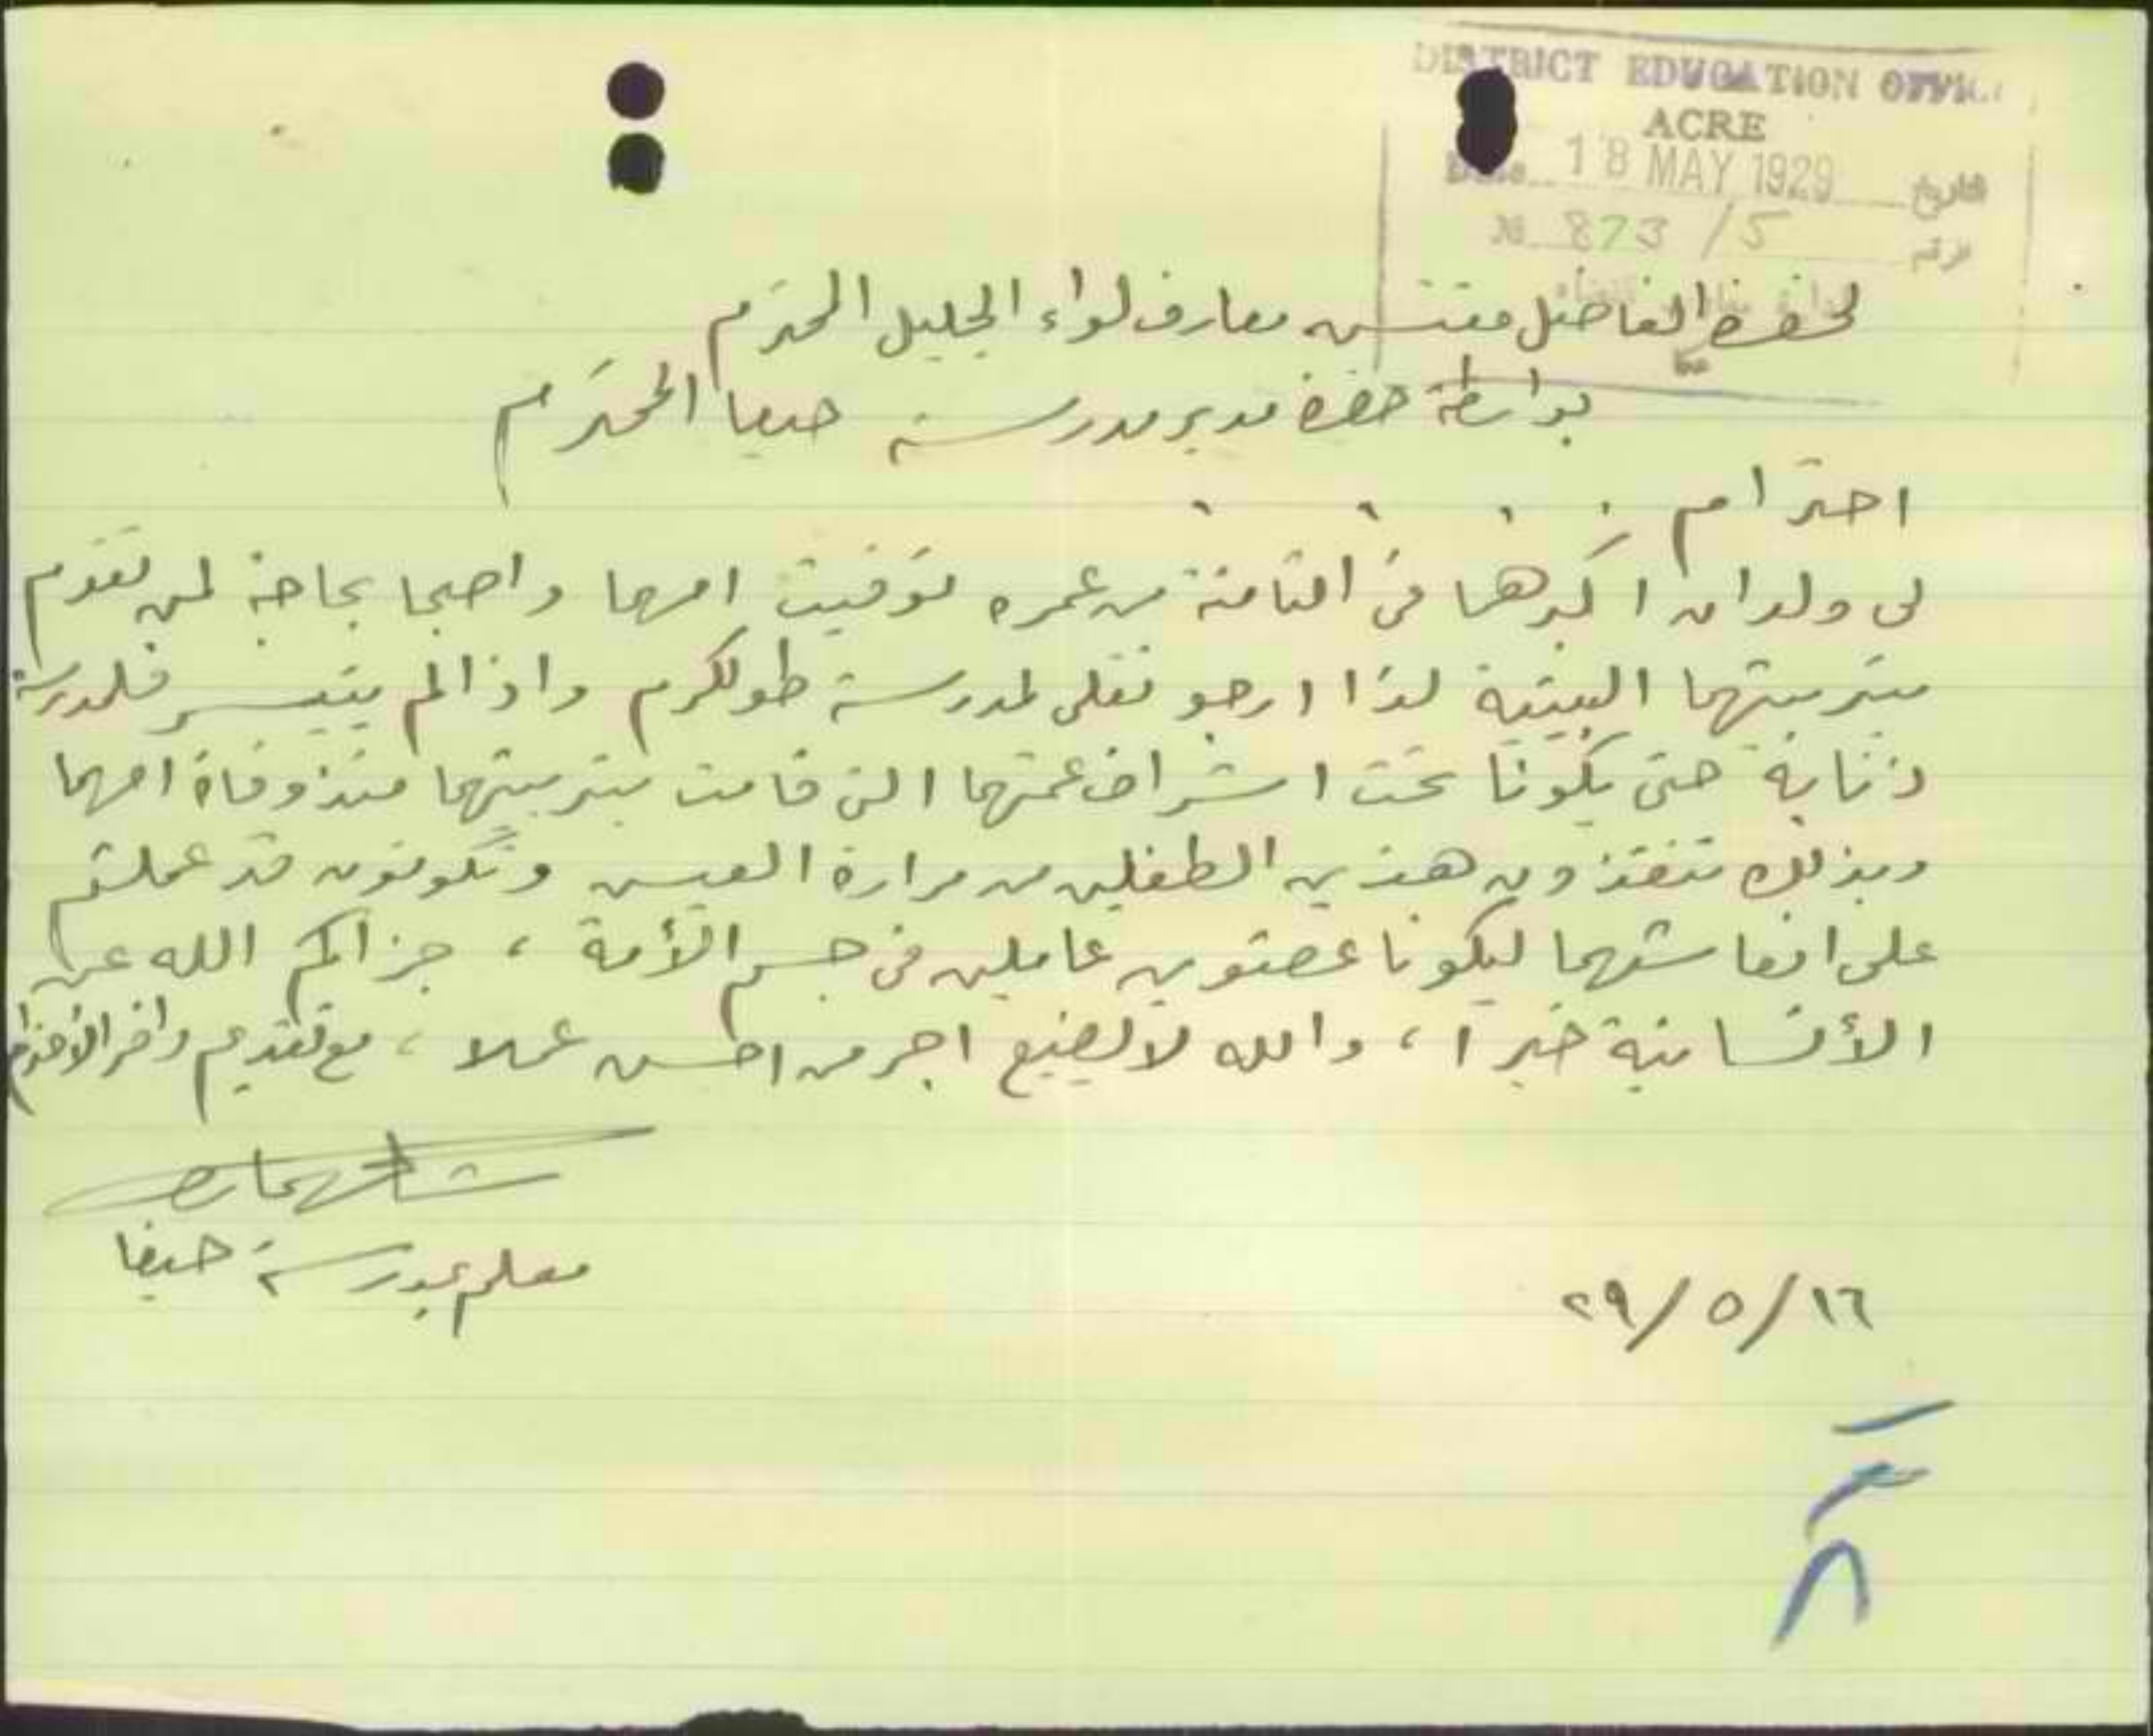 DISTRICT EDUCATION OFFICE
ACRE
Date 18 MAY 1929 التاريخ
No 873/5 نمرة
لحضرة الفاضل مفتش معارف لواء الجليل المحترم
بواسطة حضرة مدير مدرسة حيفا المحترم
احترام
لي ولدان اكبرهما في الثامنة من عمره توفيت امهما واصبحا بحاجة لمن تقوم
بتربيتهما البيتية لذا ارجو نقلي لمدرسة طولكرم واذا لم يتيسر فلمدرسة
ذنابة حتى يكونا تحت اشراف عمتهما التي قامت بتربيتهما منذ وفاة امهما
وبذلك تنقذون هذين الطفلين من مرارة العيش وتكونون قد عملتم
على انعاشهما ليكونا عضوين عاملين في جسم الأمة ، جزاكم الله عن
الأنسانية خيرا ، والله لا يضيع اجر من احسن عملا ، مع تقديم وافر الاحترام
معلم بمدرسة حيفا
١٦/٥/٢٩